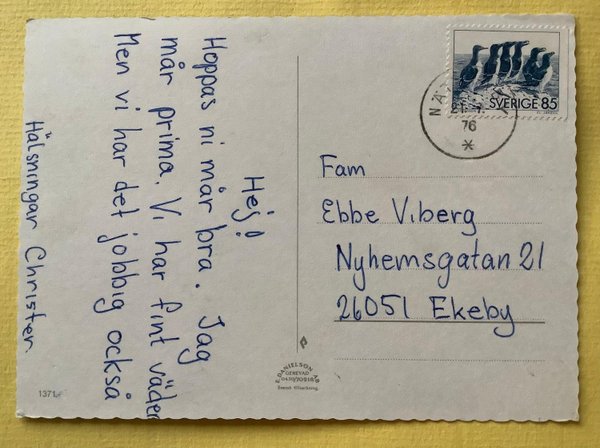 Hej!
Hoppas ni mår bra. Jag
mår prima. Vi har fint väder
Men vi har det jobbig också
Hälsningar Christer.
SVERIGE 85
76
Fam
Ebbe Viberg
Nyhemsgatan 21
26051 Ekeby
E. DANIELSON AB
Svensk tillverkning
1371